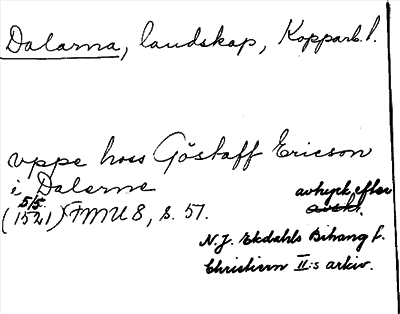 Dalarna, landskap, Kopparb. l.
vppe hoss Göstaff Ericson
i Dalerne
5/5
(1521) FMU 8, s. 57.
avtryck efter
avskr.
N.J. Ekdahls Bihang t.
Christiern II:s arkiv.